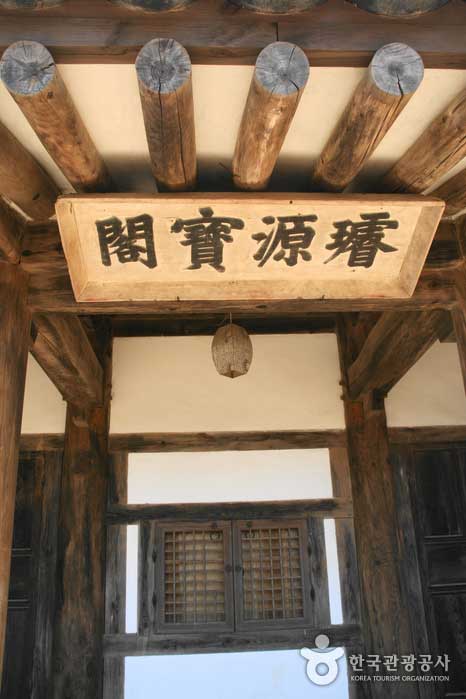 璿源寶閣
한국관광공사
KOREA TOURISM ORGANIZATION